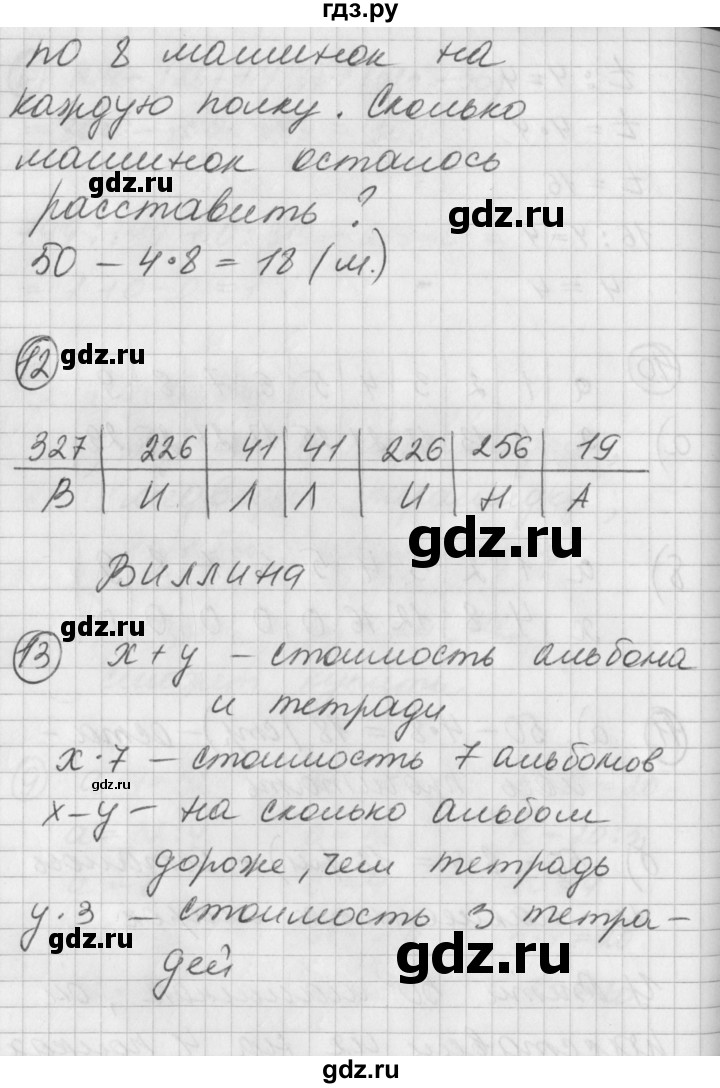 гдз.ру
по 8 машинок на
каждую полку. Сколько
машинок осталось
gdz.ru
расставить?
gdz.ru
50 - 4·8 = 18 (м.)
12
gdz.ru
327 | 226 | 41 | 41 | 226 | 256 | 19
В | И | Л | Л | И | Н | А
gdz.ru
Виллина
gdz.ru
13 x + y - стоимость альбома
и тетради
x·7 - стоимость 7 альбомов
gdz.ru
x-y - на сколько альбом
дороже, чем тетрадь
y·3 - стоимость 3 тетра-
gdz.ru
дей
gdz.ru
gdz.ru